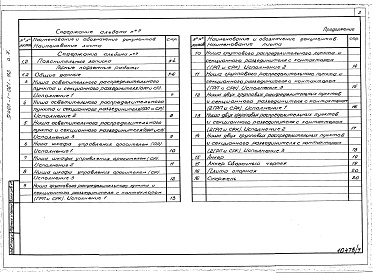 2
Содержание альбома №7
№№ листов
Наименование и обозначение документов
Наименование листа
стр.
Содержание альбома №7
1.2
Пояснительная записка
Общие данные
3
Ниша осветительного распределительного
пункта и секционного разъединителя
Исполнение 1
7
4
Ниша осветительного распределительного
пункта и секционного разъединителя
Исполнение 2
8
5
Ниша осветительного распределительного
пункта и секционного разъединителя
Исполнение 3
9
6
Ниша шкафа управления орошителем
Исполнение 1
10
7
Ниша шкафа управления орошителем
Исполнение 2
11
8
Ниша шкафа управления орошителем
Исполнение 3
12
9
Ниша группового распределительного пункта и
секционного разъединителя с контактором
(ГРП и СРК) Исполнение 1
13
Продолжение
Наименование и обозначение документов
Наименование листа
стр.
10
Ниша группового распределительного пункта и
секционного разъединителя с контактором
(ГРП и СРК) Исполнение 2
14
11
Ниша группового распределительного пункта и
секционного разъединителя с контактором
(ГРП и СРК) Исполнение 3
15
12
Ниша двух групповых распределительных пунктов
и секционного разъединителя с контактором
(2ГРП и СРК) Исполнение 1
16
13
Ниша двух групповых распределительных пунктов
и секционного разъединителя с контактором
(2ГРП и СРК) Исполнение 2
17
14
Ниша двух групповых распределительных пунктов
и секционного разъединителя с контактором
(2ГРП и СРК) Исполнение 3
18
15
Анкер
19
15
Анкер Сборочный чертеж
19
16
Плита опорная
20
16
Стержень
20